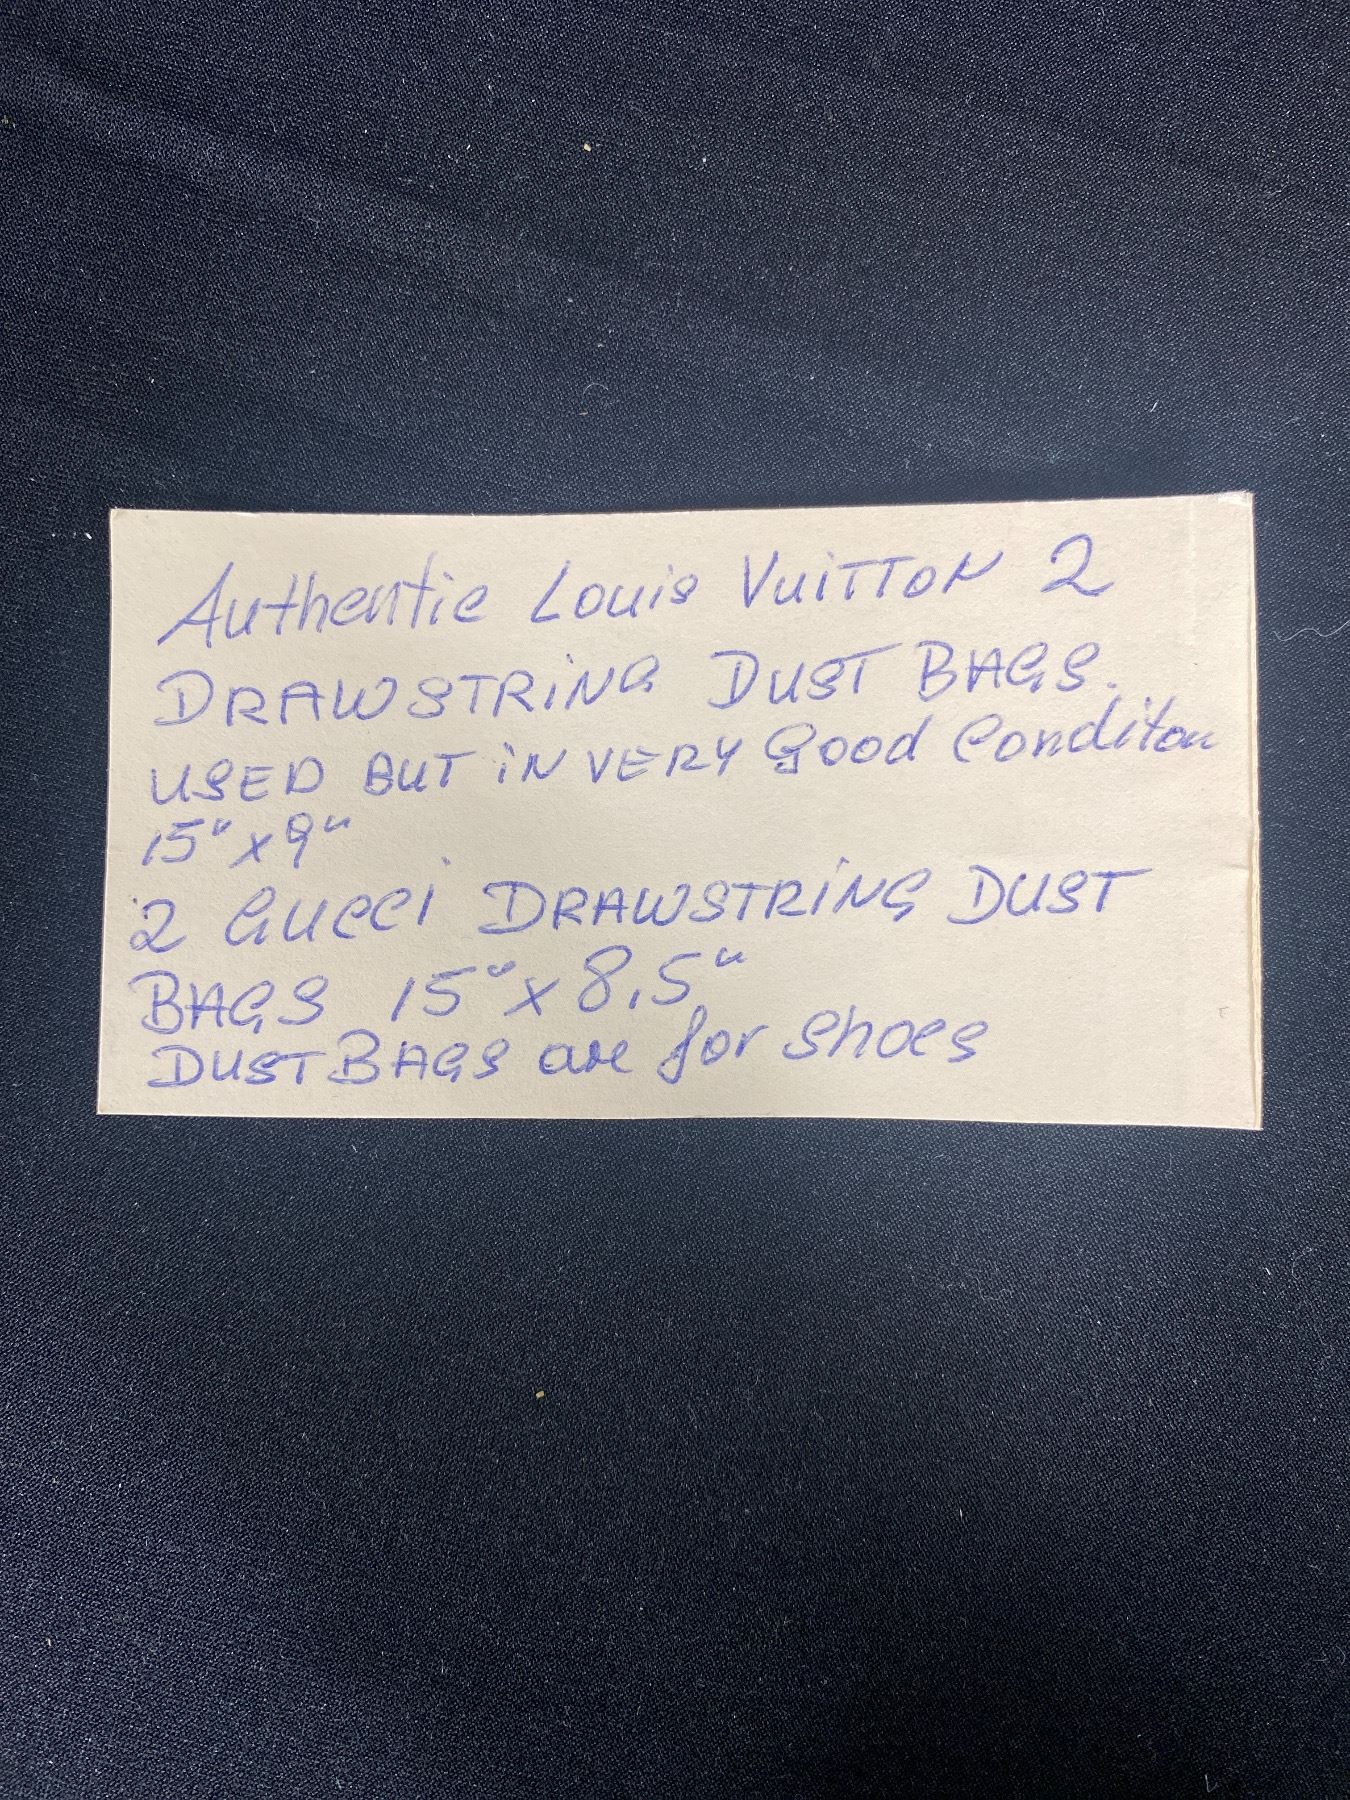 Authentic Louis VuiTTON 2
DRAWSTRiNG DUST BAGS.
USED BUT iN VERY Good Conditon
15" x 9"
2 GUCCi DRAWSTRiNG DUST
BAGS 15" x 8,5"
DUST BAGS are for shoes